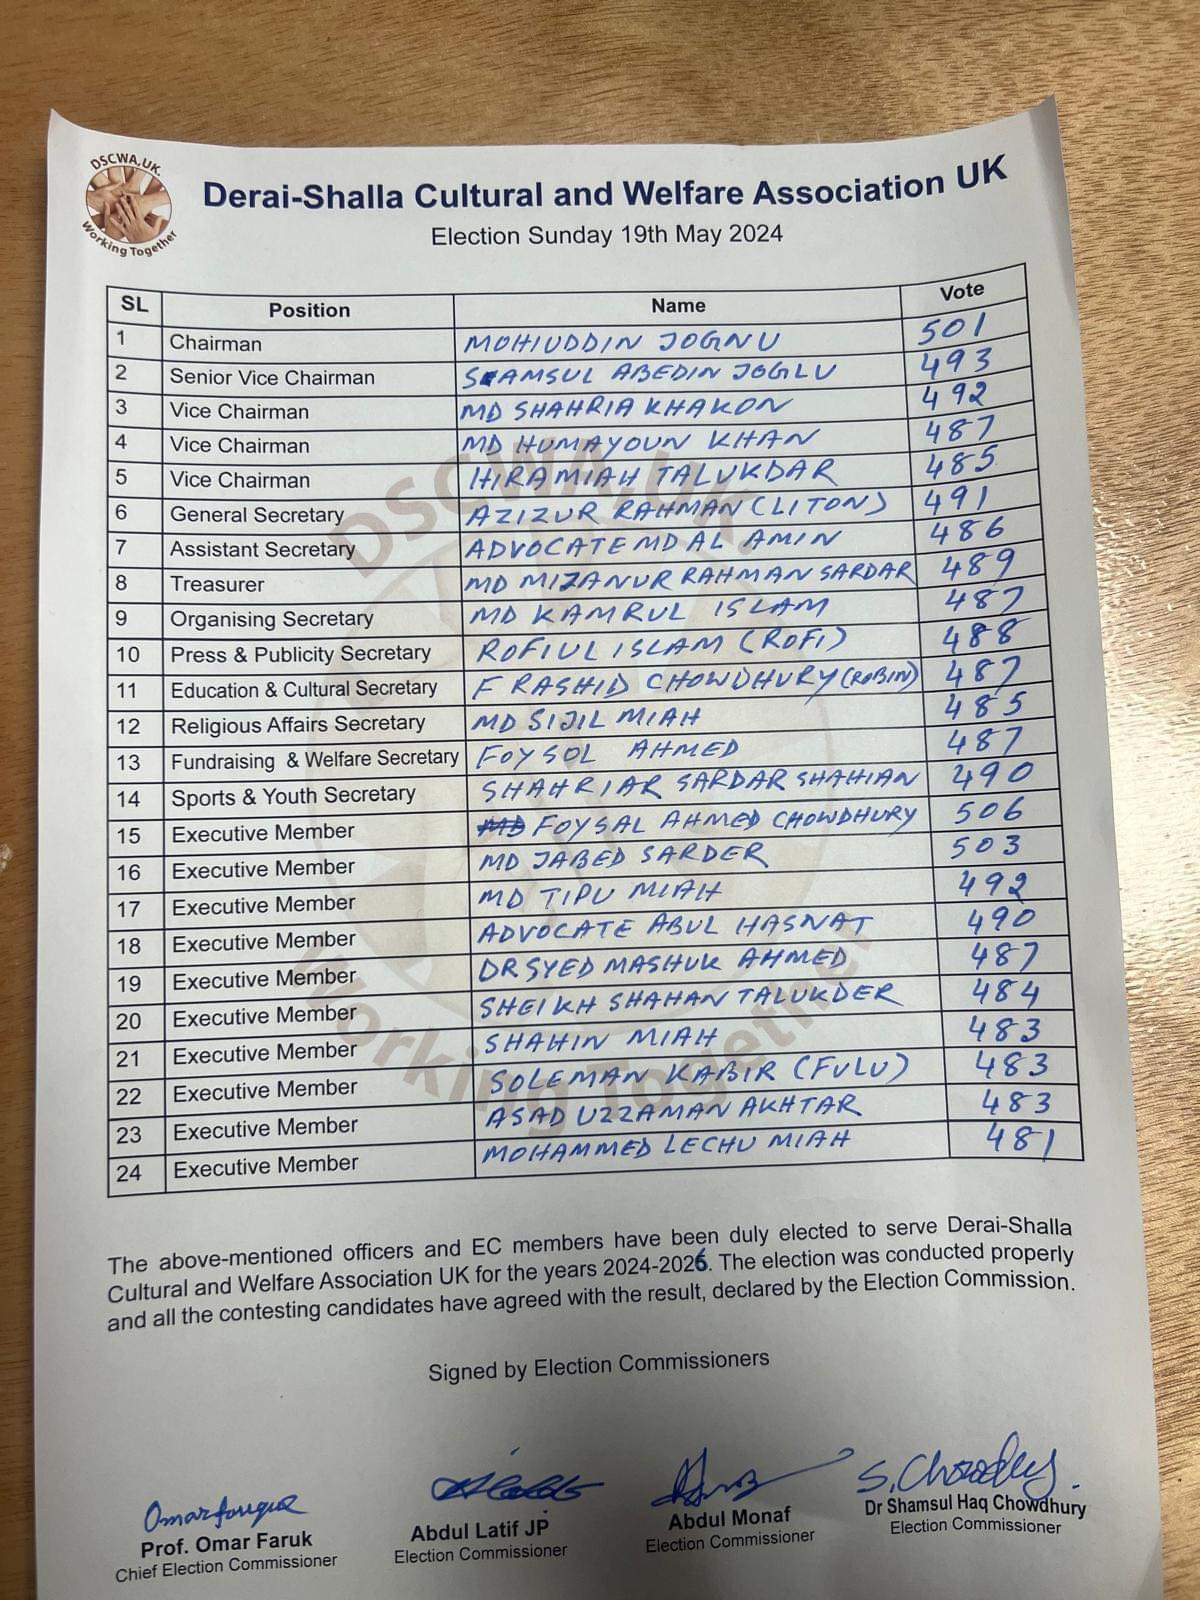 DSCWA,UK.
Working Together
Derai-Shalla Cultural and Welfare Association UK
Election Sunday 19th May 2024
SL Position Name Vote
1 Chairman MOHIUDDIN JOGNU 501
2 Senior Vice Chairman SHAMSUL ABEDIN JOGLU 493
3 Vice Chairman MD SHAHRIA KHAKON 492
4 Vice Chairman MD HUMAYOUN KHAN 487
5 Vice Chairman HIRA MIAH TALUKDAR 485
6 General Secretary AZIZUR RAHMAN (LITON) 491
7 Assistant Secretary ADVOCATE MD AL AMIN 486
8 Treasurer MD MIZANUR RAHMAN SARDAR 489
9 Organising Secretary MD KAMRUL ISLAM 487
10 Press & Publicity Secretary ROFIUL ISLAM (ROFI) 488
11 Education & Cultural Secretary F RASHID CHOWDHURY (ROBIN) 487
12 Religious Affairs Secretary MD SIJIL MIAH 485
13 Fundraising & Welfare Secretary FOYSOL AHMED 487
14 Sports & Youth Secretary SHAHRIAR SARDAR SHAHIAN 490
15 Executive Member FOYSAL AHMED CHOWDHURY 506
16 Executive Member MD JABED SARDER 503
17 Executive Member MD TIPU MIAH 492
18 Executive Member ADVOCATE ABUL HASNAT 490
19 Executive Member DR SYED MASHUK AHMED 487
20 Executive Member SHEIKH SHAHAN TALUKDER 484
21 Executive Member SHAHIN MIAH 483
22 Executive Member SOLEMAN KABIR (FULU) 483
23 Executive Member ASAD UZZAMAN AKHTAR 483
24 Executive Member MOHAMMED LECHU MIAH 481
DSCWA,UK.
Working Together
The above-mentioned officers and EC members have been duly elected to serve Derai-Shalla
Cultural and Welfare Association UK for the years 2024-2026. The election was conducted properly
and all the contesting candidates have agreed with the result, declared by the Election Commission.
Signed by Election Commissioners
Omar Faruk
S. Chowdhury.
Prof. Omar Faruk
Chief Election Commissioner
Abdul Latif JP
Election Commissioner
Abdul Monaf
Election Commissioner
Dr Shamsul Haq Chowdhury
Election Commissioner